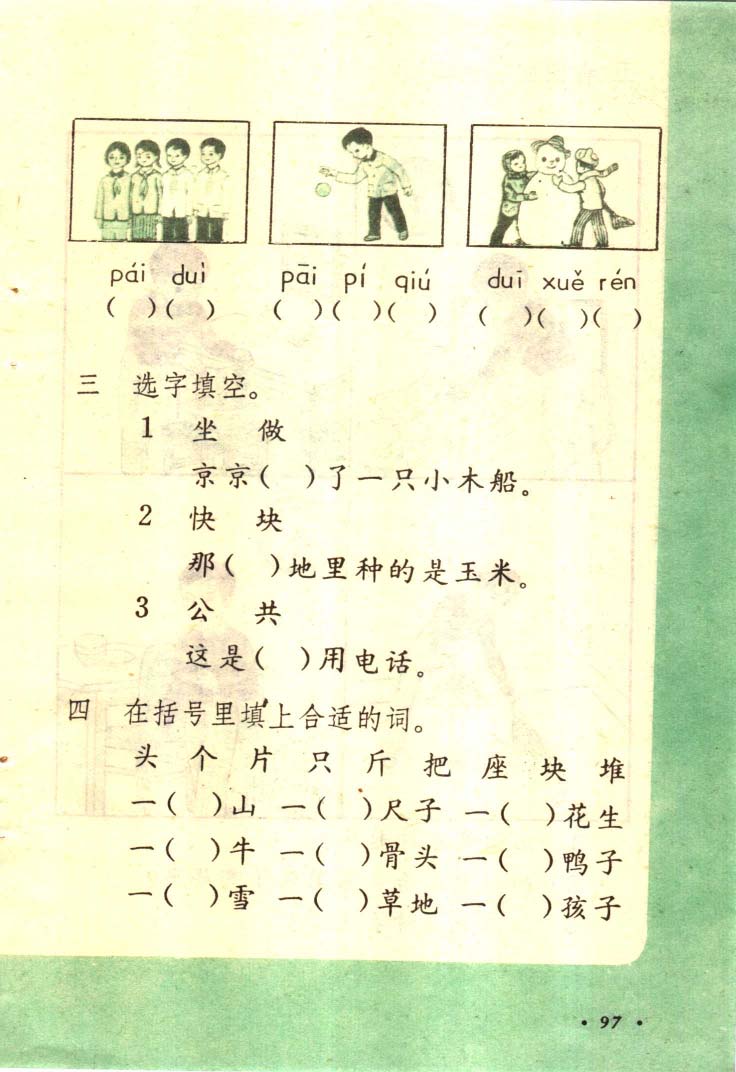 pái duì pāi pí qiú duī xuě rén
( )( ) ( )( )( ) ( )( )( )
三 选字填空。
1 坐 做
京京( )了一只小木船。
2 快 块
那( )地里种的是玉米。
3 公 共
这是( )用电话。
四 在括号里填上合适的词。
头 个 片 只 斤 把 座 块 堆
一( )山 一( )尺子 一( )花生
一( )牛 一( )骨头 一( )鸭子
一( )雪 一( )草地 一( )孩子
• 97 •